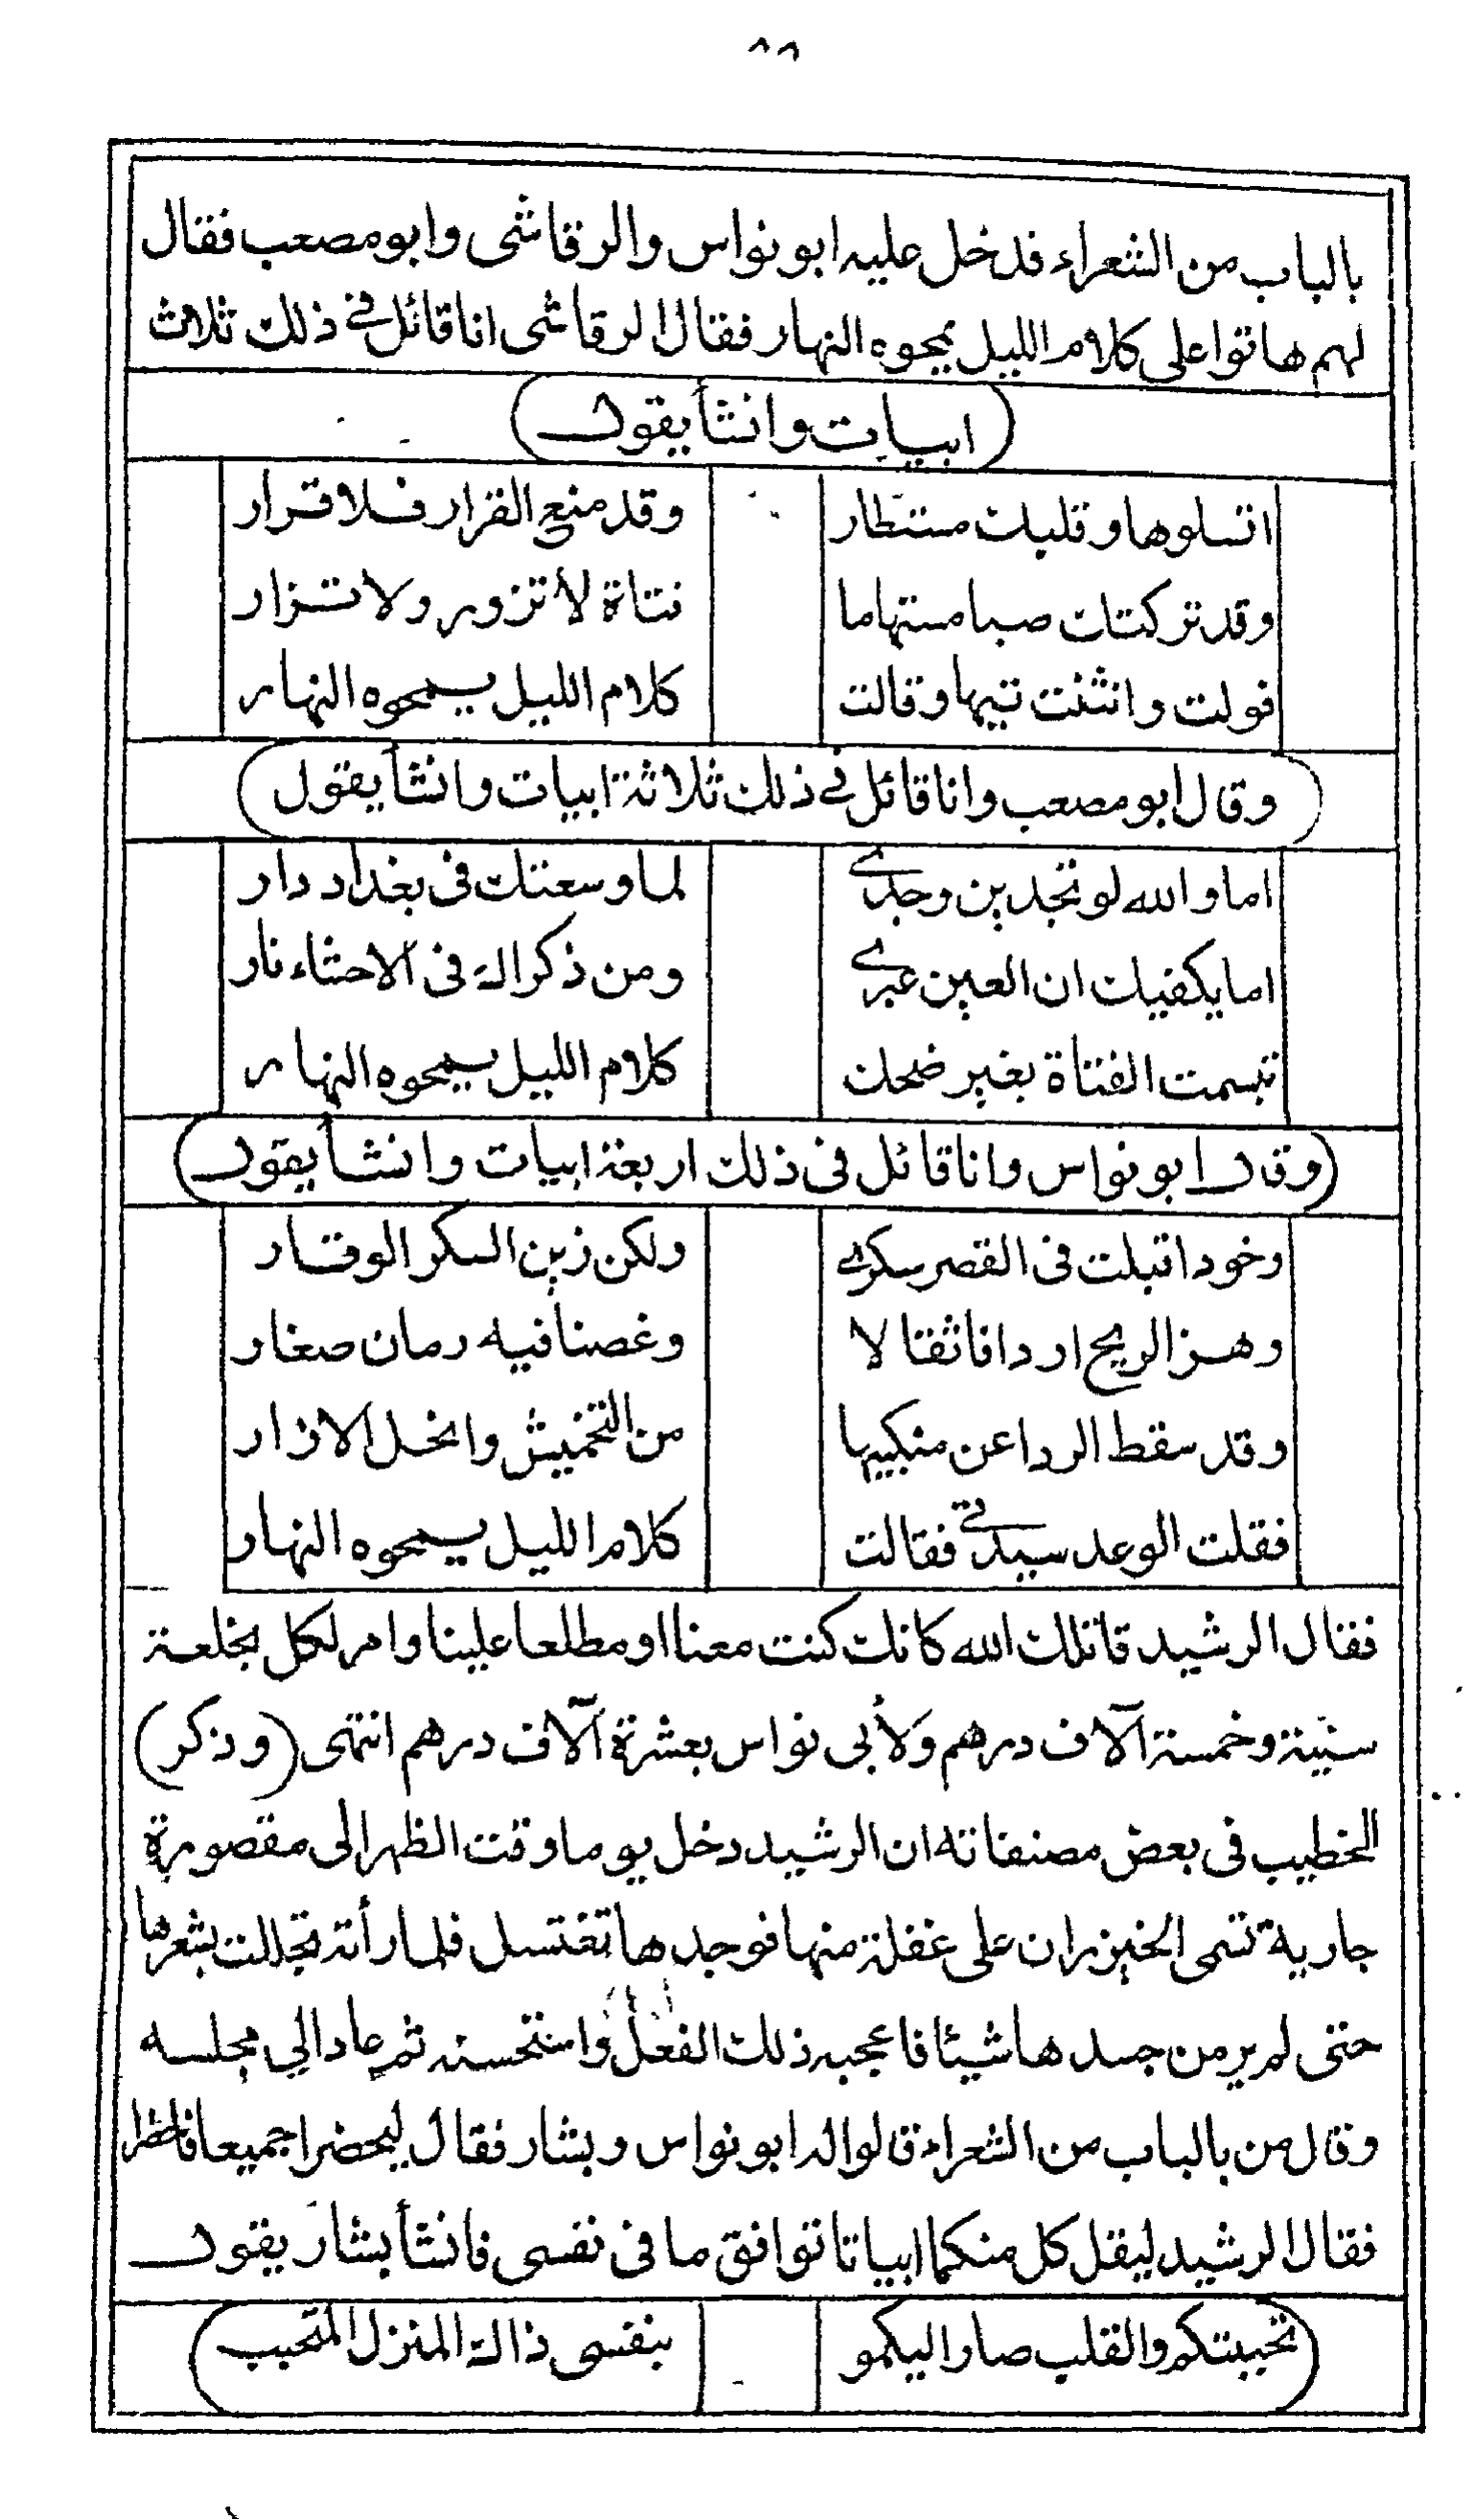 ٨٨
بالباب من الشعراء فدخل عليه ابو نواس والرقاشى وابو مصعب فقال
لهم هاتوا على كلام الليل يمحوه النهار فقال الرقاشى انا قائل في ذلك ثلاث
(ابيات وانشأ يقول)
اتسلوها وقلبك مستطار وقد منع القرار فلا قرار
وقد تركتك صبا مستهاما فتاة لا تزور ولا تزار
فولت وانثنت تيها وقالت كلام الليل يمحوه النهار
(وقال ابو مصعب وانا قائل في ذلك ثلاثة ابيات وانشأ يقول)
اما والله لو تجدين وجدى لما وسعتك فى بغداد دار
اما يكفيك ان العين عبرى ومن ذكراك فى الاحشاء نار
تبسمت الفتاة بغير ضحك كلام الليل يمحوه النهار
(وقال ابو نواس وانا قائل فى ذلك اربعة ابيات وانشأ يقول)
وخود اقبلت فى القصر سكرى ولكن زين السكر الوقار
وهز الريح اردافا ثقالا وغصنا فيه رمان صغار
وقد سقط الردا عن منكبيها من التخميش وانحل الازار
فقلت الوعد سيدتى فقالت كلام الليل يمحوه النهار
فقال الرشيد قاتلك الله كانك كنت معنا او مطلعا علينا وامر لكل بخلعة
سنية وخمسة آلاف درهم ولأبى نواس بعشرة آلاف درهم انتهى (وذكر)
الخطيب فى بعض مصنفاته ان الرشيد دخل يوما وقت الظهر الى مقصورة
جارية تسمى الخيزران على غفلة منها فوجدها تغتسل فلما رأته تجللت بشعرها
حتى لم ير من جسدها شيئا فاعجبه ذلك الفعل واستحسنه ثم عاد الى مجلسه
وقال من بالباب من الشعراء قالوا له ابو نواس وبشار فقال ليحضرا جميعا فاحضرا
فقال الرشيد ليقل كل منكما ابياتا توافق ما فى نفسى فانشأ بشار يقول
(تحببتكم والقلب صار اليكمو بنفسى ذاك المنزل المتحبب)